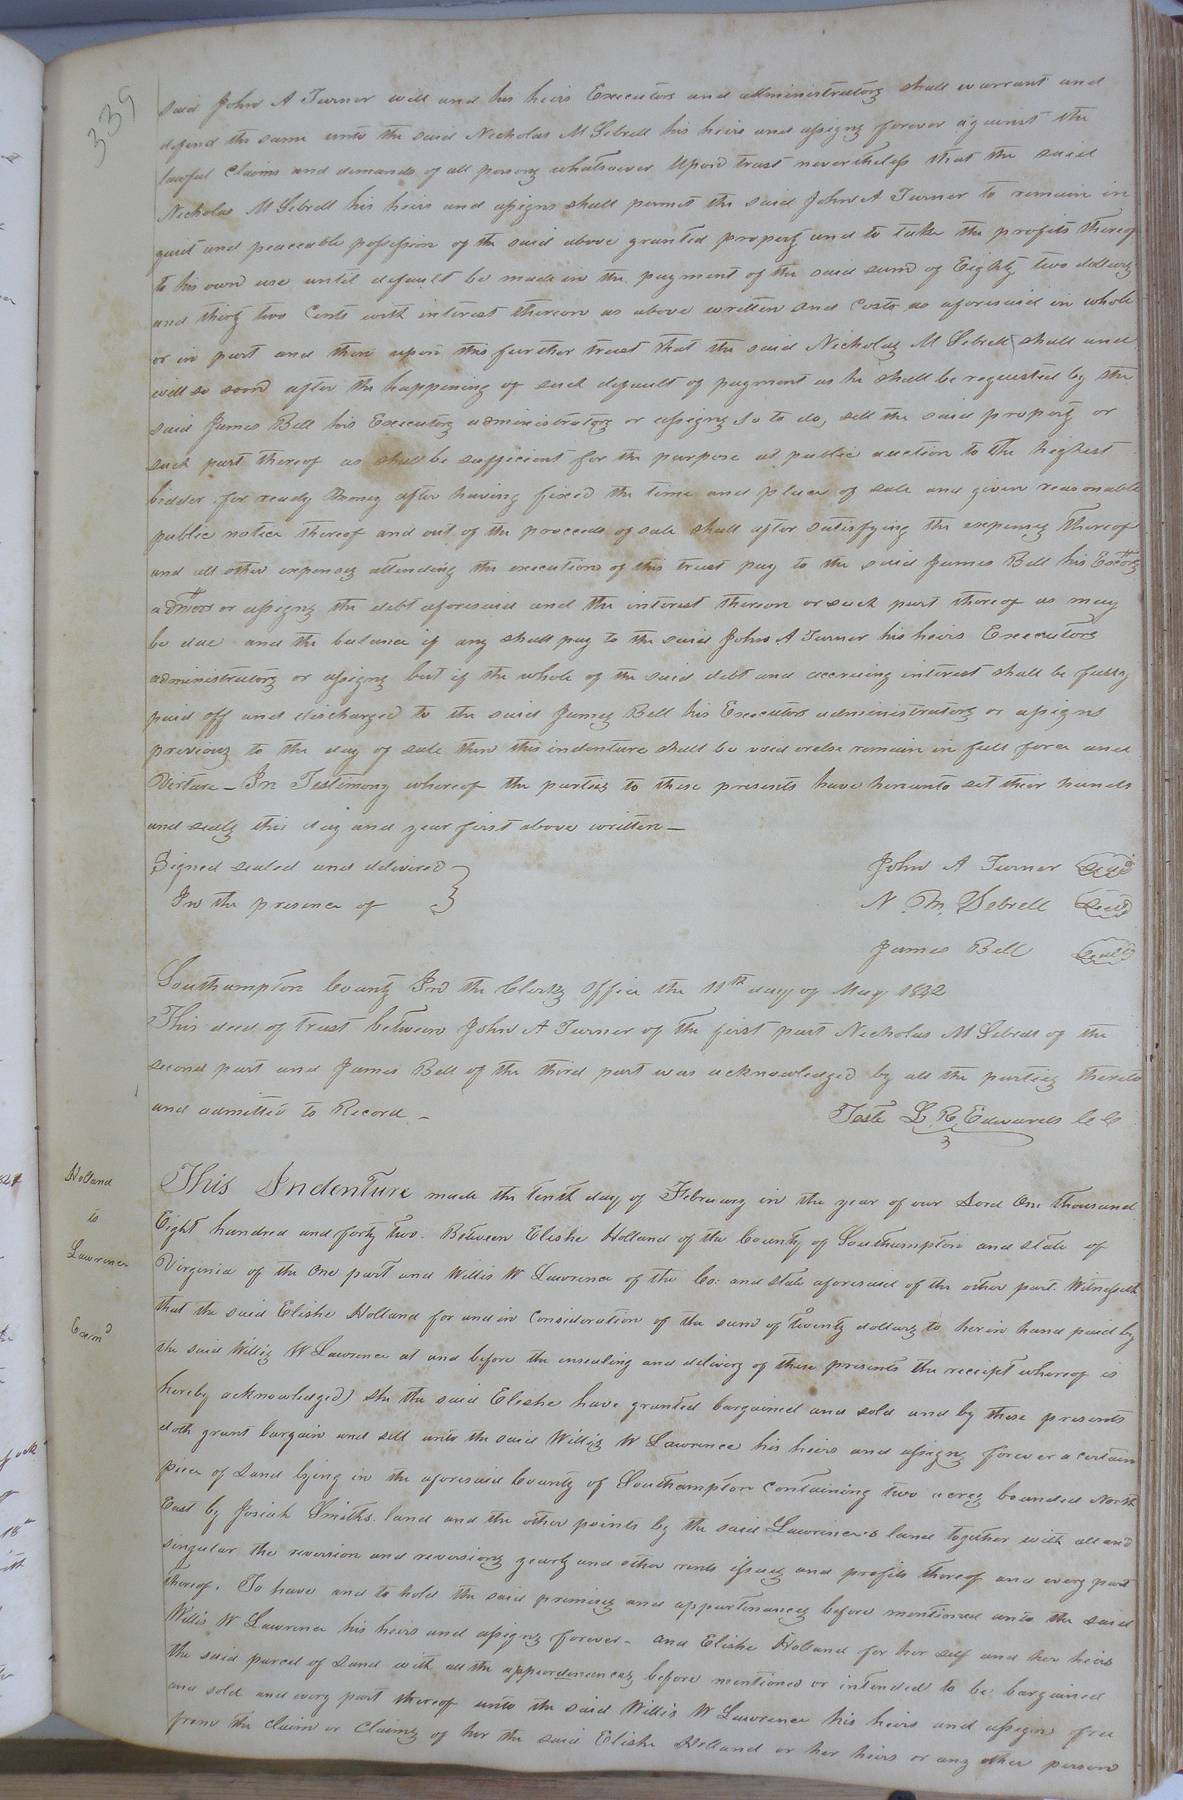 339
said John A Turner will and his heirs Executors and administrators shall warrant and
defend the same unto the said Nicholas M Sebrell his heirs and assigns forever against the
lawful claims and demands of all persons whatsoever Upon trust nevertheless that the said
Nicholas M Sebrell his heirs and assigns shall permit the said John A Turner to remain in
quiet and peaceable possession of the said above granted property and to take the profits thereof
to his own use until default be made in the payment of the said sum of Eighty two dollars
and thirty two Cents with interest thereon as above written and Costs as aforesaid in whole
or in part and then upon this further trust that the said Nicholas M Sebrell shall and
will so soon after the happening of such default of payment as he shall be requested by the
said James Bell his Executors administrators or assigns so to do, sell the said property or
such part thereof as shall be sufficient for the purpose at public auction to the highest
bidder for ready money after having fixed the time and place of sale and given reasonable
public notice thereof and out of the proceeds of sale shall after satisfying the expenses thereof
and all other expenses attending the execution of this trust pay to the said James Bell his Exors
admors or assigns the debt aforesaid and the interest thereon or such part thereof as may
be due and the balance if any shall pay to the said John A Turner his heirs Executors
administrators or assigns but if the whole of the said debt and accruing interest shall be fully
paid off and discharged to the said James Bell his Executors administrators or assigns
previous to the day of sale then this indenture shall be void or else remain in full force and
Virtue — In Testimony whereof the parties to these presents have hereunto set their hands
and seals this day and year first above written —
Signed sealed and delivered } John A Turner Seal
In the presence of } N. M. Sebrell Seal
James Bell Seal
Southampton County In the Clerks Office the 11th day of May 1842
This deed of trust between John A Turner of the first part Nicholas M Sebrell of the
second part and James Bell of the third part was acknowledged by all the parties thereto
and admitted to Record —
Teste L. R. Edwards C C
Holland
to
Lawrence
Exmd
This Indenture made the tenth day of February in the year of our Lord One thousand
Eight hundred and forty two. Between Elishe Holland of the County of Southampton and state of
Virginia of the One part and Willis W Lawrence of the Co: and state aforesaid of the other part. Witnesseth
that the said Elishe Holland for and in Consideration of the sum of twenty dollars to her in hand paid by
the said Willis W Lawrence at and before the ensealing and delivery of these presents the receipt whereof is
hereby acknowledged) she the said Elishe have granted bargained and sold and by these presents
doth grant bargain and sell unto the said Willis W Lawrence his heirs and assigns forever a certain
piece of Land lying in the aforesaid County of Southampton containing two acres bounded North
East by Josiah Smiths land and the other points by the said Lawrence's land together with all and
singular the reversion and reversions yearly and other rents issues and profits thereof and every part
thereof. To have and to hold the said premises and appurtenances before mentioned unto the said
Willis W Lawrence his heirs and assigns forever - and Elishe Holland for her self and her heirs
the said parcel of Land with all the appurtenances before mentioned or intended to be bargained
and sold and every part thereof unto the said Willis W Lawrence his heirs and assigns free
from the claim or Claims of her the said Elishe Holland or her heirs or any other person